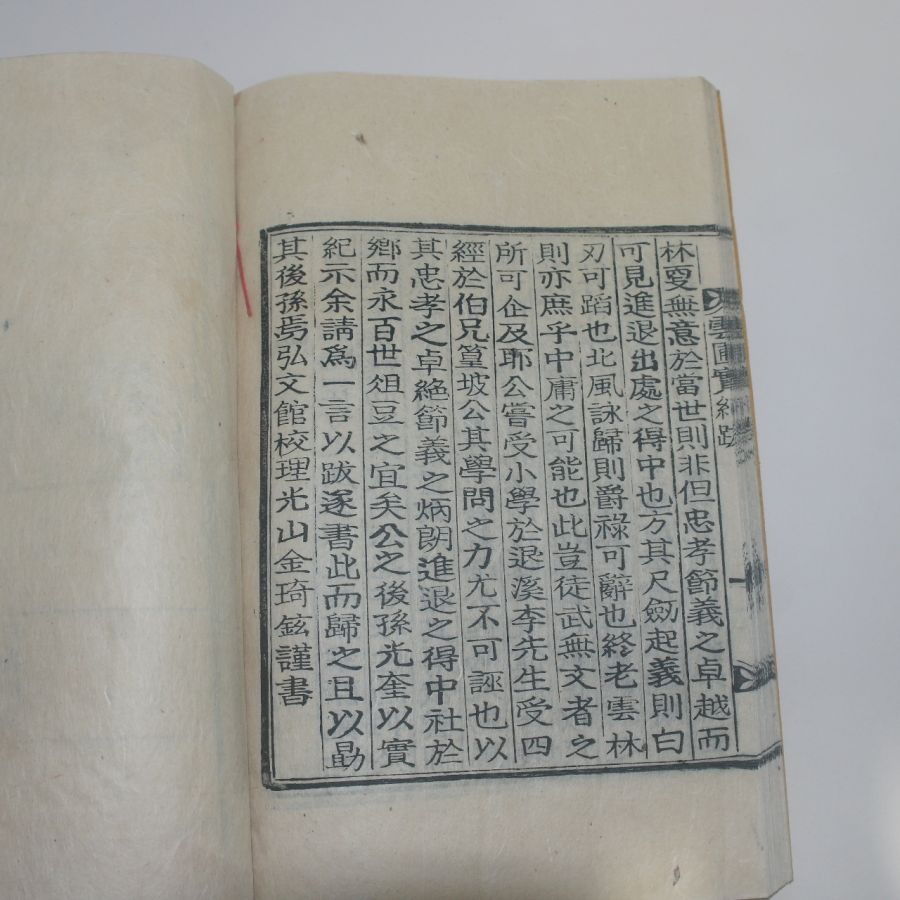 雲圃實紀跋
林夏無意於當世則非但忠孝節義之卓越而
可見進退出處之得中也方其尺劒起義則白
刃可蹈也北風詠歸則爵祿可辭也終老雲林
則亦庶乎中庸之可能也此豈徒武無文者之
所可企及耶公嘗受小學於退溪李先生受四
經於伯兄篁坡公其學問之力尤不可誣也以
其忠孝之卓絶節義之炳朗進退之得中社於
鄉而永百世俎豆之宜矣公之後孫光奎以實
紀示余請爲一言以跋遂書此而歸之且以勗
其後孫焉弘文館校理光山金琦鉉謹書